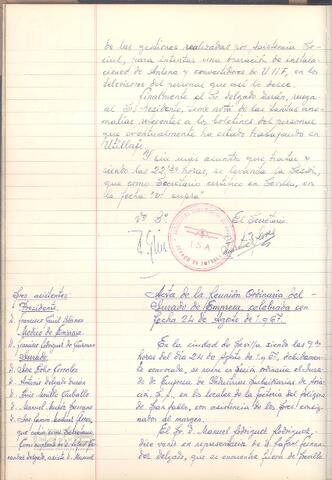 de las gestiones realizadas por Asistencia So-
cial, para intentar una operación de instala-
ciones de Antena y convertidores de U H F, en los
televisores del personal que así lo desee.
Finalmente el Sr. Delgado Durán, ruega
al Sr. Presidente, tome nota de las tantas ano-
malías referentes a los boletines del personal
que eventualmente ha estado trabajando en
Utillaje.
Y sin mas asuntos que tratar y
siendo las 22, horas, se levanta la Sesión,
que como Secretario certifico en Sevilla, en
la fecha "ut supra"
Vº Bº El Secretario
I.S.A.
JURADO DE EMPRESA
Sres asistentes:
Presidente
D. Francisco
Médico de Empresa
D. Francisco de Guzmán
Jurado
D. José Peño Corrales
D. Antonio Delgado Durán
D. Luis Carballo
D. Manuel Serrano
D. José
que como
Acta de la Reunión Ordinaria del
Jurado de Empresa, celebrada con
fecha 24 de Agosto de 1.967
En la ciudad de Sevilla siendo las
horas del día 24 de Agosto de 1.967, debidamente
convocado, se reune en sesión ordinaria el Jurado
de Empresa de Industrias Subsidiarias de Avia-
ción, S.A., en los locales de la factoría del polígono
de San Pablo, con asistencia de los Sres. consig-
nados al margen.
El Sr. D. Manuel Rodriguez Rodriguez,
que viene en representación de D. Rafael Fernán-
dez Delgado, que se encuentra fuera de Sevilla